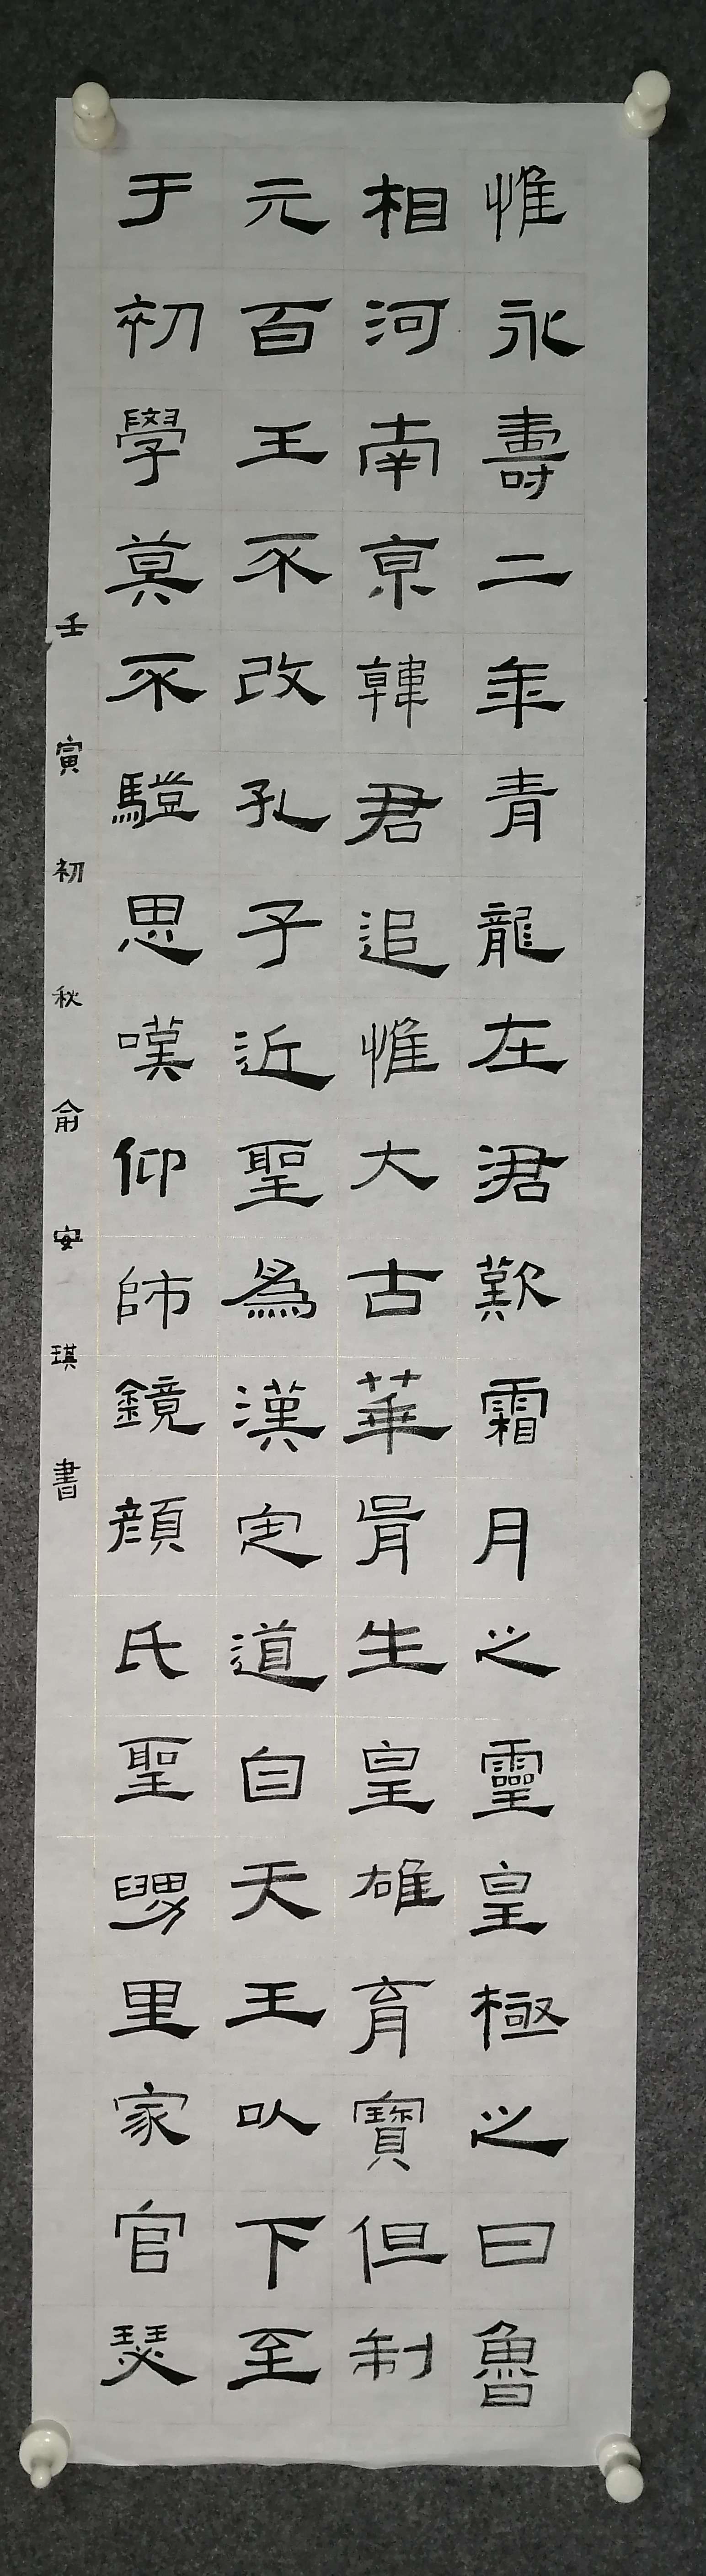 惟永壽二年青龍在涒歎霜月之靈皇極之日魯
相河南京韓君追惟大古華胥生皇雄育寶但制
元百王不改孔子近聖為漢定道自天王以下至
于初學莫不驥思嘆仰師鏡顏氏聖舅里家官瑟
壬寅初秋俞安琪書